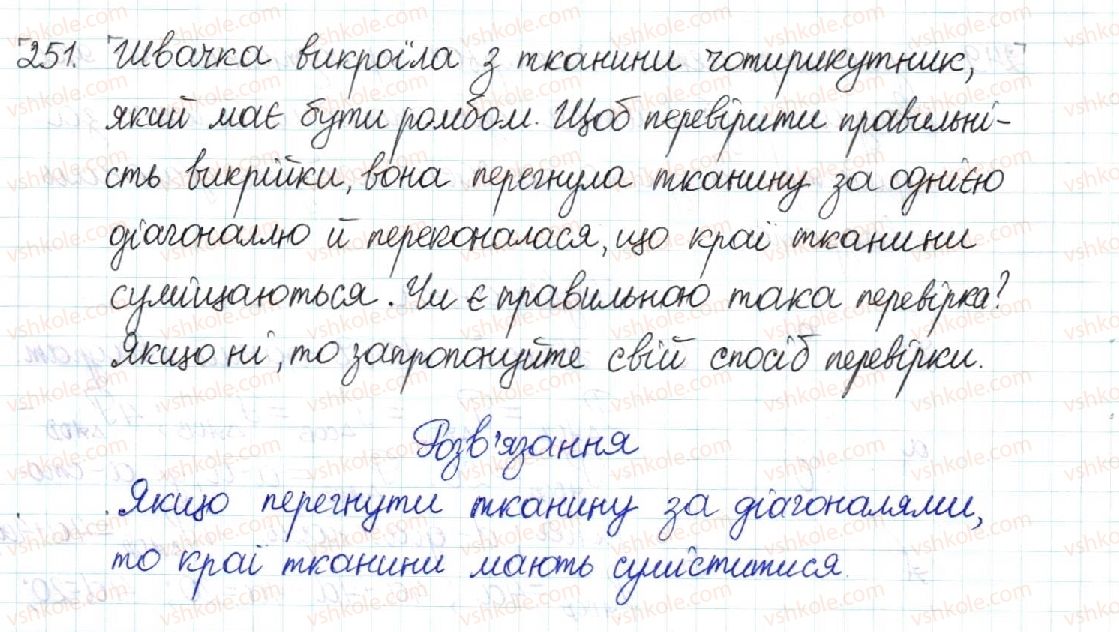 251. Швачка викроїла з тканини чотирикутник,
який має бути ромбом. Щоб перевірити правильні-
сть викрійки, вона перегнула тканину за однією
діагоналлю й переконалася, що краї тканини
суміщаються. Чи є правильною така перевірка?
Якщо ні, то запропонуйте свій спосіб перевірки.
Розв'язання
Якщо перегнути тканину за діагоналями,
то краї тканини мають суміститися.